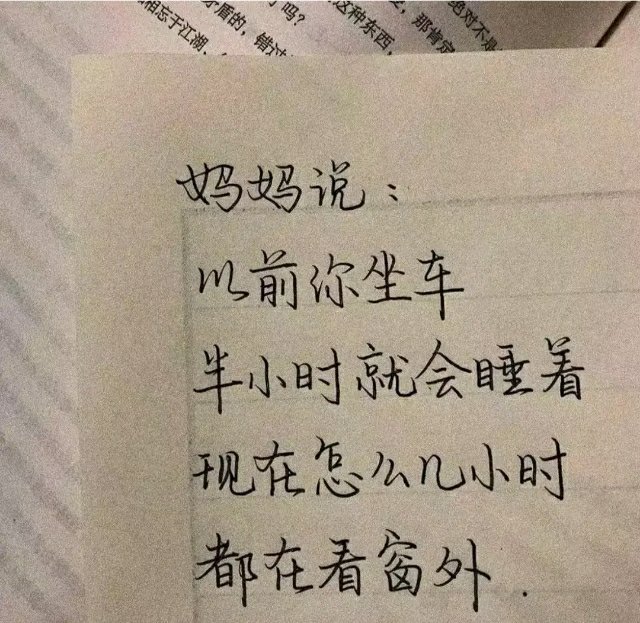 相忘于江湖，
矛盾的，错过
吗？
这种东西，
那肯定
绝对不是
妈妈说：
以前你坐车
半小时就会睡着
现在怎么几小时
都在看窗外.